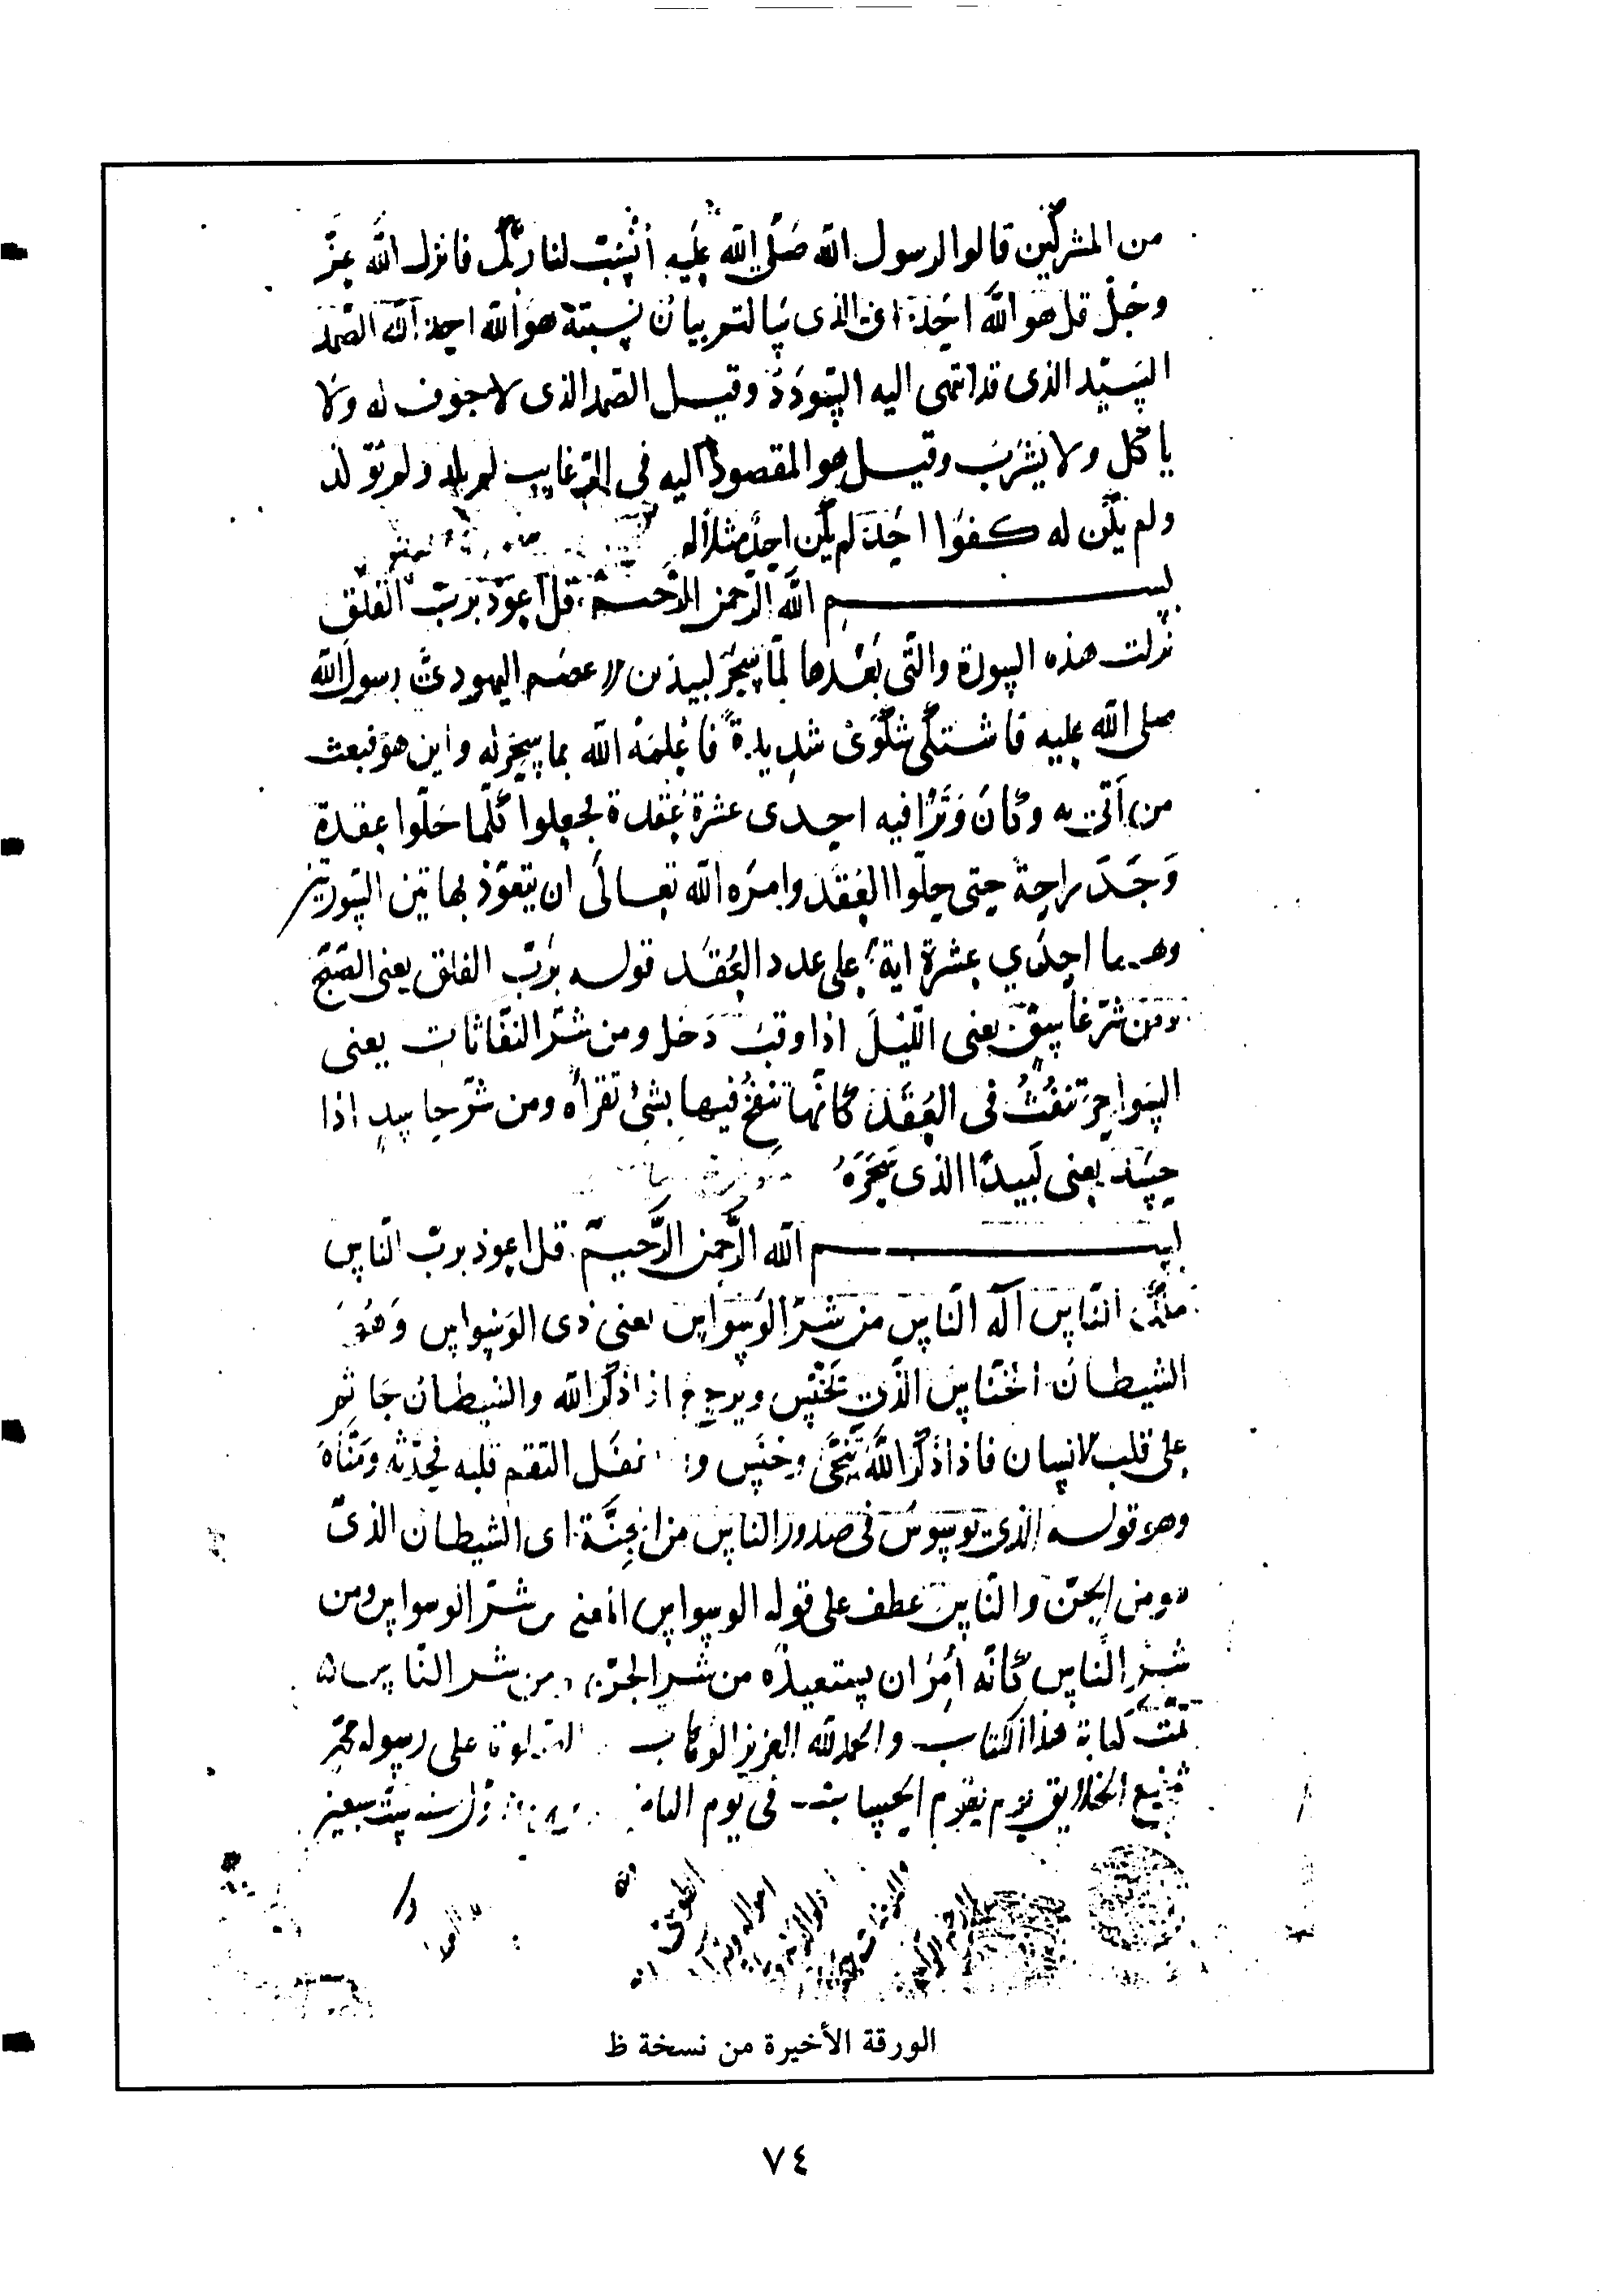 من المشركين قالوا لرسول الله صلى الله عليه أنسب لنا ربك فانزل الله عز
وجل قل هو الله احد اى الذى سالتم تبيان نسبته هو الله احد الله الصمد
السيد الذى قد انتهى اليه السودد وقيل الصمد الذى لا جوف له ولا
ياكل ولا يشرب وقيل هو المقصود اليه فى الرغايب لم يلد ولم يولد
ولم يكن له كفوا احد لم يكن احد مثلا له
بسم الله الرحمن الرحيم قل اعوذ برب الفلق
نزلت هذه السورة والتى بعدها لما سحر لبيد بن الاعصم اليهودى رسول الله
صلى الله عليه فاشتكى شكوى شديدة فاعلمه الله بما سحر له واين هو فبعث
من اتى به وكان وترا فيه احدى عشرة عقدة فجعلوا كلما حلوا عقدة
وجد راحة حتى حلوا العقد وامره الله تعالى ان يتعوذ بهاتين السورتين
وهما احدى عشرة اية على عدد العقد قوله برب الفلق يعنى الصبح
ومن شر غاسق يعنى الليل اذا وقب دخل ومن شر النفاثات يعنى
السواحر تنفث فى العقد كانها تنفخ فيها بشئ تقرأه ومن شر حاسد اذا
حسد يعنى لبيدا الذى سحره
بسم الله الرحمن الرحيم قل اعوذ برب الناس
ملك الناس اله الناس من شر الوسواس يعنى ذى الوسواس وهو
الشيطان الخناس الذى يخنس ويرجع اذا ذكر الله والشيطان جاثم
على قلب الانسان فاذا ذكر الله تنحى وخنس و غفل التقم قلبه فحدثه ومناه
وهو قوله الذى يوسوس فى صدور الناس من الجنة اى الشيطان الذى
هو من الجن والناس عطف على قوله الوسواس المعنى من شر الوسواس ومن
شر الناس كانه أمر ان يستعيذه من شر الجن ومن شر الناس
تمت كتابة هذا الكتاب والحمد لله العزيز الوهاب والصلوة على رسوله محمد
شفيع الخلايق يوم يقوم الحساب فى يوم سنه ست سبعين
الورقة الأخيرة من نسخة ظ
٧٤